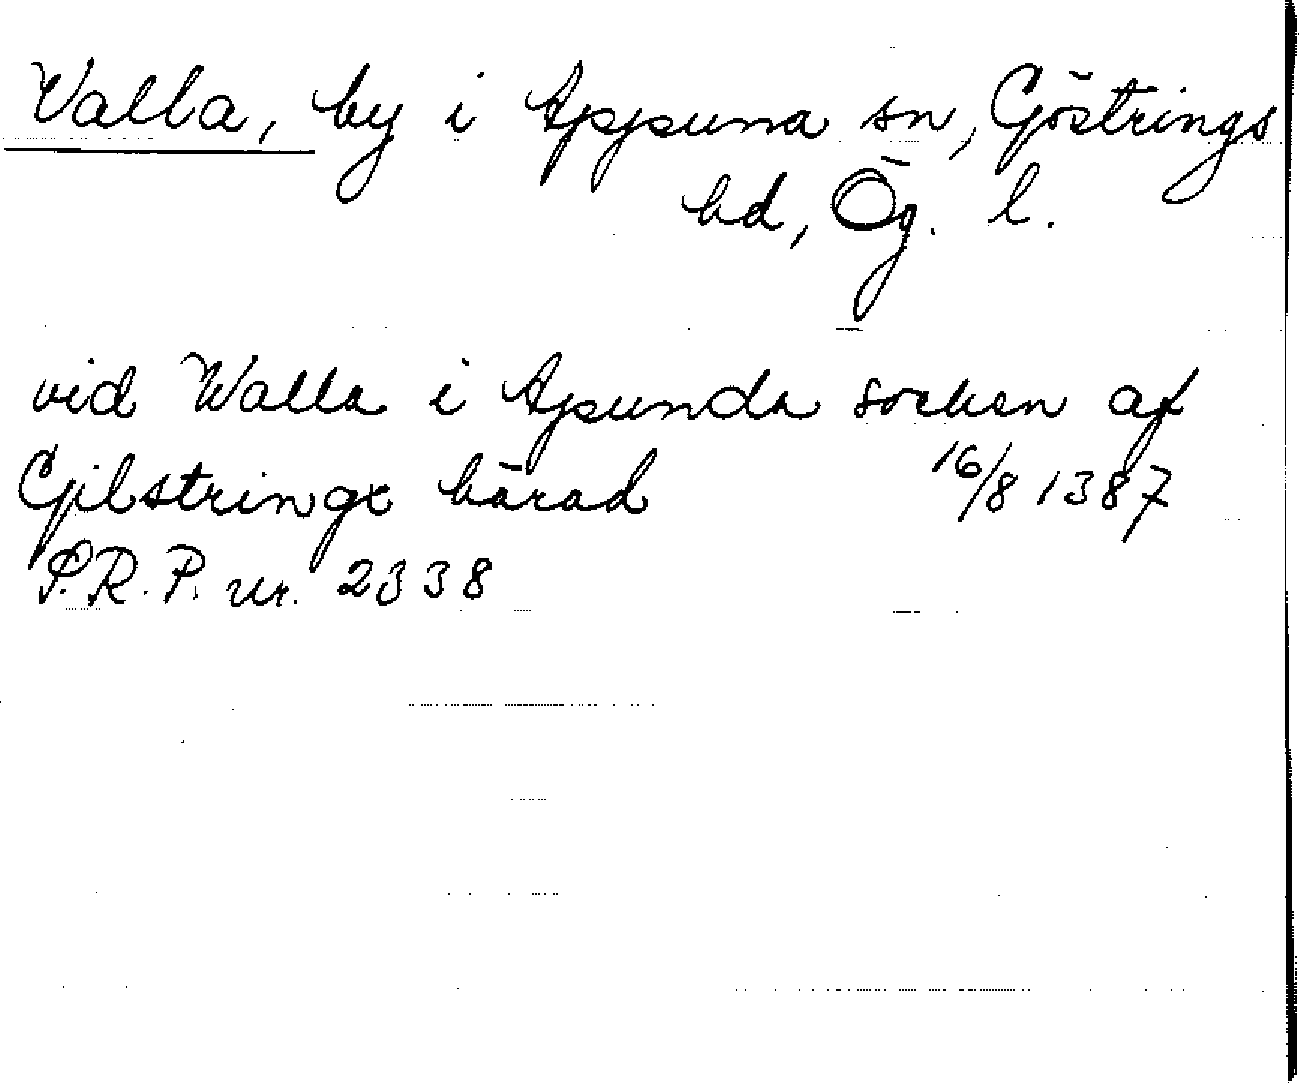 Valla, by i Appuna sn, Göstrings
hd, Ög. l.
vid Walla i Apunda socken af
Gilstringe härad 16/8 1387
S.R.P. nr. 2338